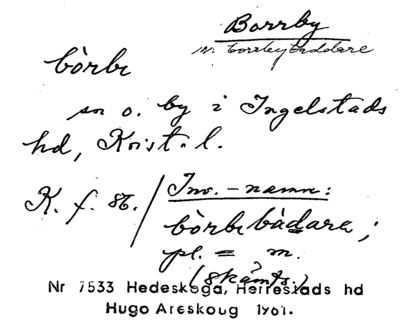 Borrby
bòrbı
sn o. by i Ingelstads
hd, Krist. l.
K. f. 86. / Inv.-namn:
bòrbıbàdara;
pl. = m.
(skämts.)
Nr 7533 Hedeskoga, Herrestads hd
Hugo Areskoug 1961.